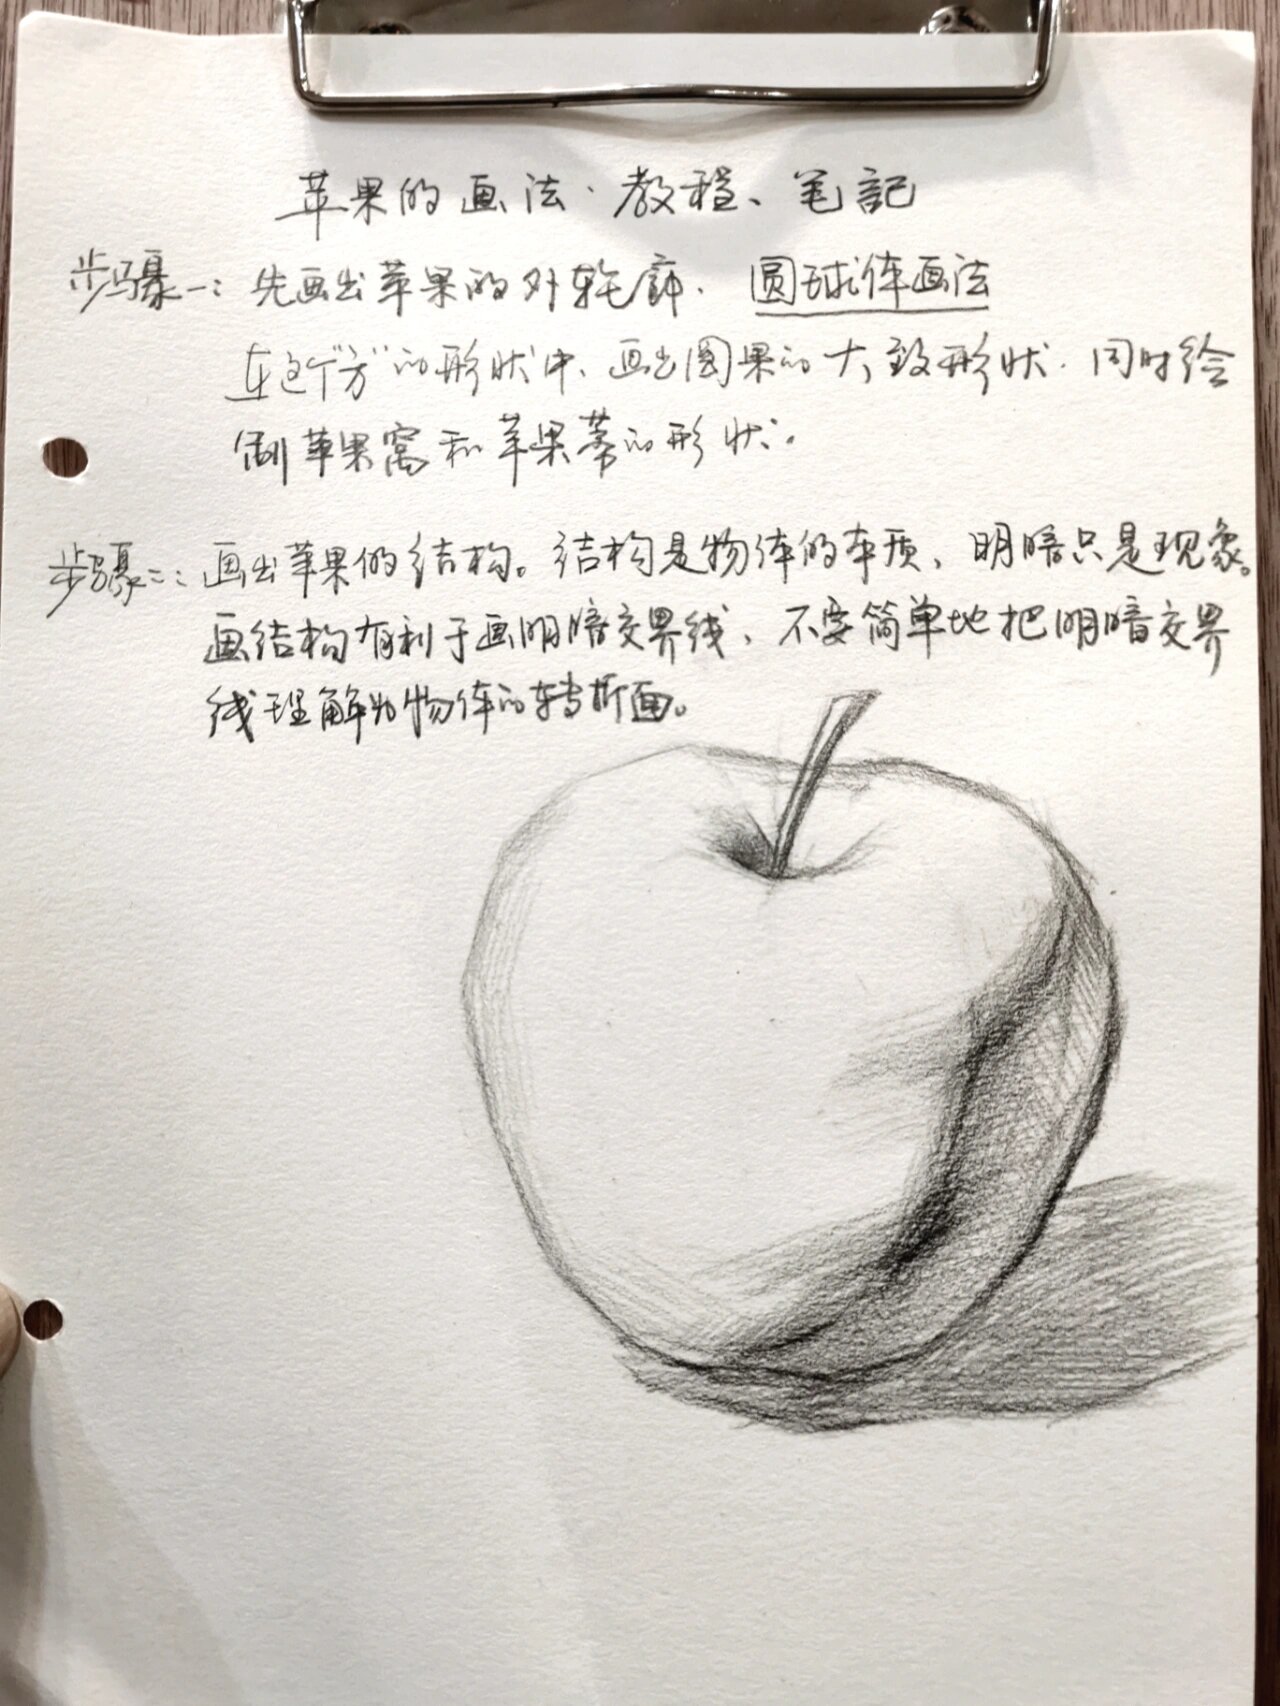 苹果的画法·教程、笔記
步骤一:先画出苹果的外轮廓. 圆球体画法
在这个"方"的形状中、画出圆果的大致形状.同时绘
制苹果窝和苹果蒂的形状.
步骤二:画出苹果的结构。结构是物体的本质、明暗只是现象。
画结构有利于画明暗交界线、不要简单地把明暗交界
线理解为物体的转折面。